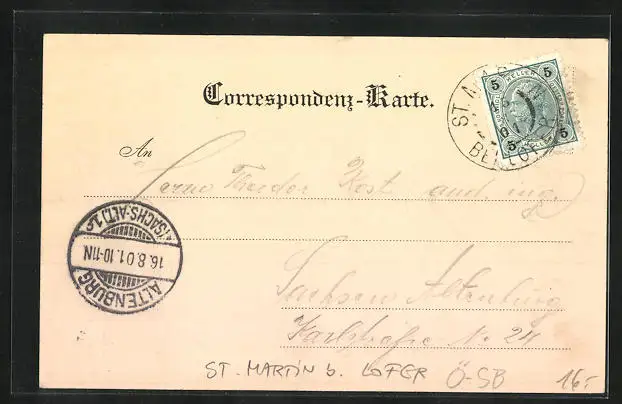 Correspondenz-Karte.
5 HELLER 5
5 5
ST. MARTIN
BEI LOFER
An
Herrn Theodor Rost cand. ing.
Sachsen Altenburg
Karlstraße No 24
(SACHS.-ALT.) 1.
16.8.01.10-11N.
ALTENBURG
ST. MARTIN b. LOFER Ö-SB 16,-